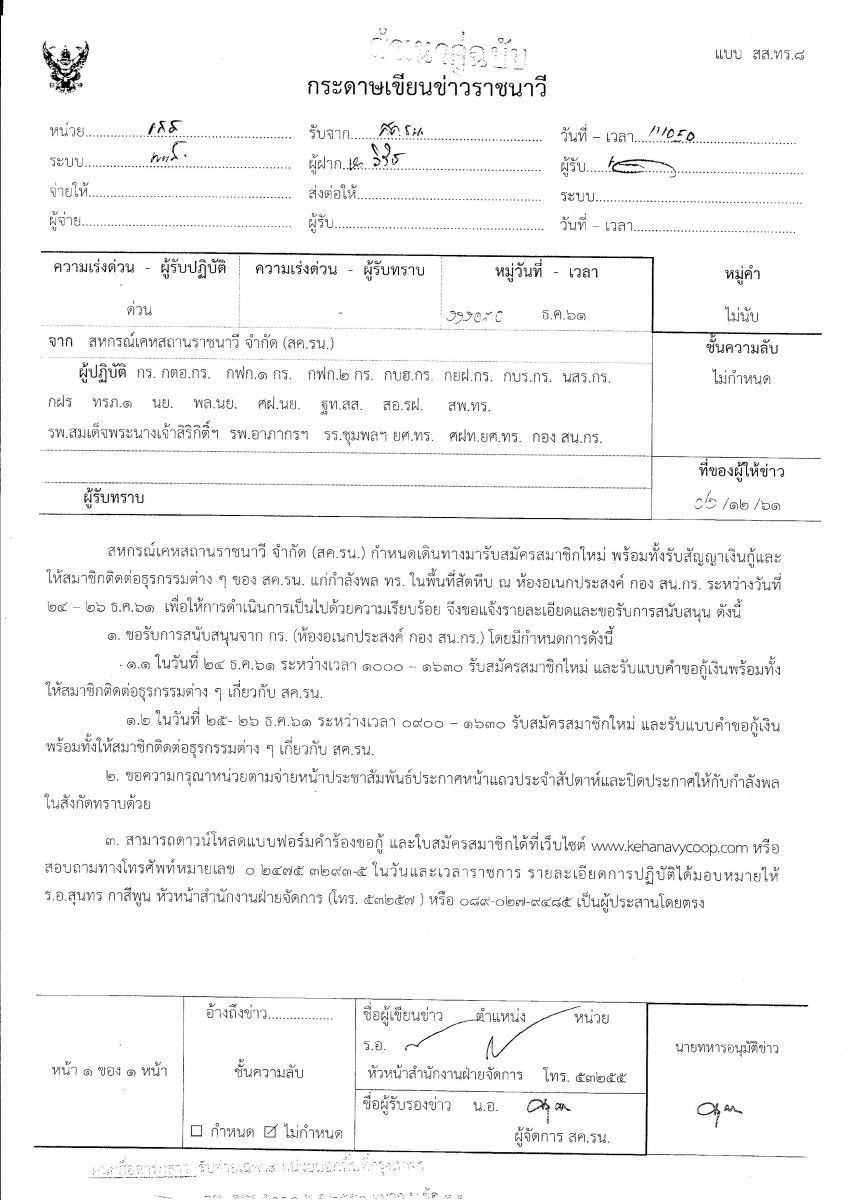 สำเนาคู่ฉบับ
แบบ สส.ทร.๘
กระดาษเขียนข่าวราชนาวี
หน่วย รับจาก สค.รน. วันที่ – เวลา
ระบบ ผู้ฝาก ผู้รับ
จ่ายให้ ส่งต่อให้ ระบบ
ผู้จ่าย ผู้รับ วันที่ – เวลา
ความเร่งด่วน - ผู้รับปฏิบัติ ความเร่งด่วน - ผู้รับทราบ หมู่วันที่ - เวลา หมู่คำ
ด่วน - ธ.ค.๖๑ ไม่นับ
จาก สหกรณ์เคหสถานราชนาวี จำกัด (สค.รน.) ชั้นความลับ
ผู้ปฏิบัติ กร. กตอ.กร. กฟก.๑ กร. กฟก.๒ กร. กบฮ.กร. กยฝ.กร. กบร.กร. นสร.กร. ไม่กำหนด
กฝร ทรภ.๑ นย. พล.นย. ศฝ.นย. ฐท.สส. สอ.รฝ. สพ.ทร.
รพ.สมเด็จพระนางเจ้าสิริกิติ์ฯ รพ.อาภากรฯ รร.ชุมพลฯ ยศ.ทร. ศฝท.ยศ.ทร. กอง สน.กร.
ที่ของผู้ให้ข่าว
ผู้รับทราบ /๑๒/๖๑
สหกรณ์เคหสถานราชนาวี จำกัด (สค.รน.) กำหนดเดินทางมารับสมัครสมาชิกใหม่ พร้อมทั้งรับสัญญาเงินกู้และ
ให้สมาชิกติดต่อธุรกรรมต่าง ๆ ของ สค.รน. แก่กำลังพล ทร. ในพื้นที่สัตหีบ ณ ห้องอเนกประสงค์ กอง สน.กร. ระหว่างวันที่
๒๔ – ๒๖ ธ.ค.๖๑ เพื่อให้การดำเนินการเป็นไปด้วยความเรียบร้อย จึงขอแจ้งรายละเอียดและขอรับการสนับสนุน ดังนี้
๑. ขอรับการสนับสนุนจาก กร. (ห้องอเนกประสงค์ กอง สน.กร.) โดยมีกำหนดการดังนี้
๑.๑ ในวันที่ ๒๔ ธ.ค.๖๑ ระหว่างเวลา ๑๐๐๐ – ๑๖๓๐ รับสมัครสมาชิกใหม่ และรับแบบคำขอกู้เงินพร้อมทั้ง
ให้สมาชิกติดต่อธุรกรรมต่าง ๆ เกี่ยวกับ สค.รน.
๑.๒ ในวันที่ ๒๕- ๒๖ ธ.ค.๖๑ ระหว่างเวลา ๐๙๐๐ – ๑๖๓๐ รับสมัครสมาชิกใหม่ และรับแบบคำขอกู้เงิน
พร้อมทั้งให้สมาชิกติดต่อธุรกรรมต่าง ๆ เกี่ยวกับ สค.รน.
๒. ขอความกรุณาหน่วยตามจ่ายหน้าประชาสัมพันธ์ประกาศหน้าแถวประจำสัปดาห์และปิดประกาศให้กับกำลังพล
ในสังกัดทราบด้วย
๓. สามารถดาวน์โหลดแบบฟอร์มคำร้องขอกู้ และใบสมัครสมาชิกได้ที่เว็บไซต์ www.kehanavycoop.com หรือ
สอบถามทางโทรศัพท์หมายเลข ๐ ๒๔๗๕ ๓๒๙๓-๕ ในวันและเวลาราชการ รายละเอียดการปฏิบัติได้มอบหมายให้
ร.อ.สุนทร กาสีพูน หัวหน้าสำนักงานฝ่ายจัดการ (โทร. ๕๓๒๕๗ ) หรือ ๐๘๙-๐๒๗-๙๔๘๕ เป็นผู้ประสานโดยตรง
อ้างถึงข่าว ชื่อผู้เขียนข่าว ตำแหน่ง หน่วย
ร.อ. นายทหารอนุมัติข่าว
หน้า ๑ ของ ๑ หน้า ชั้นความลับ หัวหน้าสำนักงานฝ่ายจัดการ โทร. ๕๓๒๕๕
ชื่อผู้รับรองข่าว น.อ.
☐ กำหนด ☑ ไม่กำหนด ผู้จัดการ สค.รน.